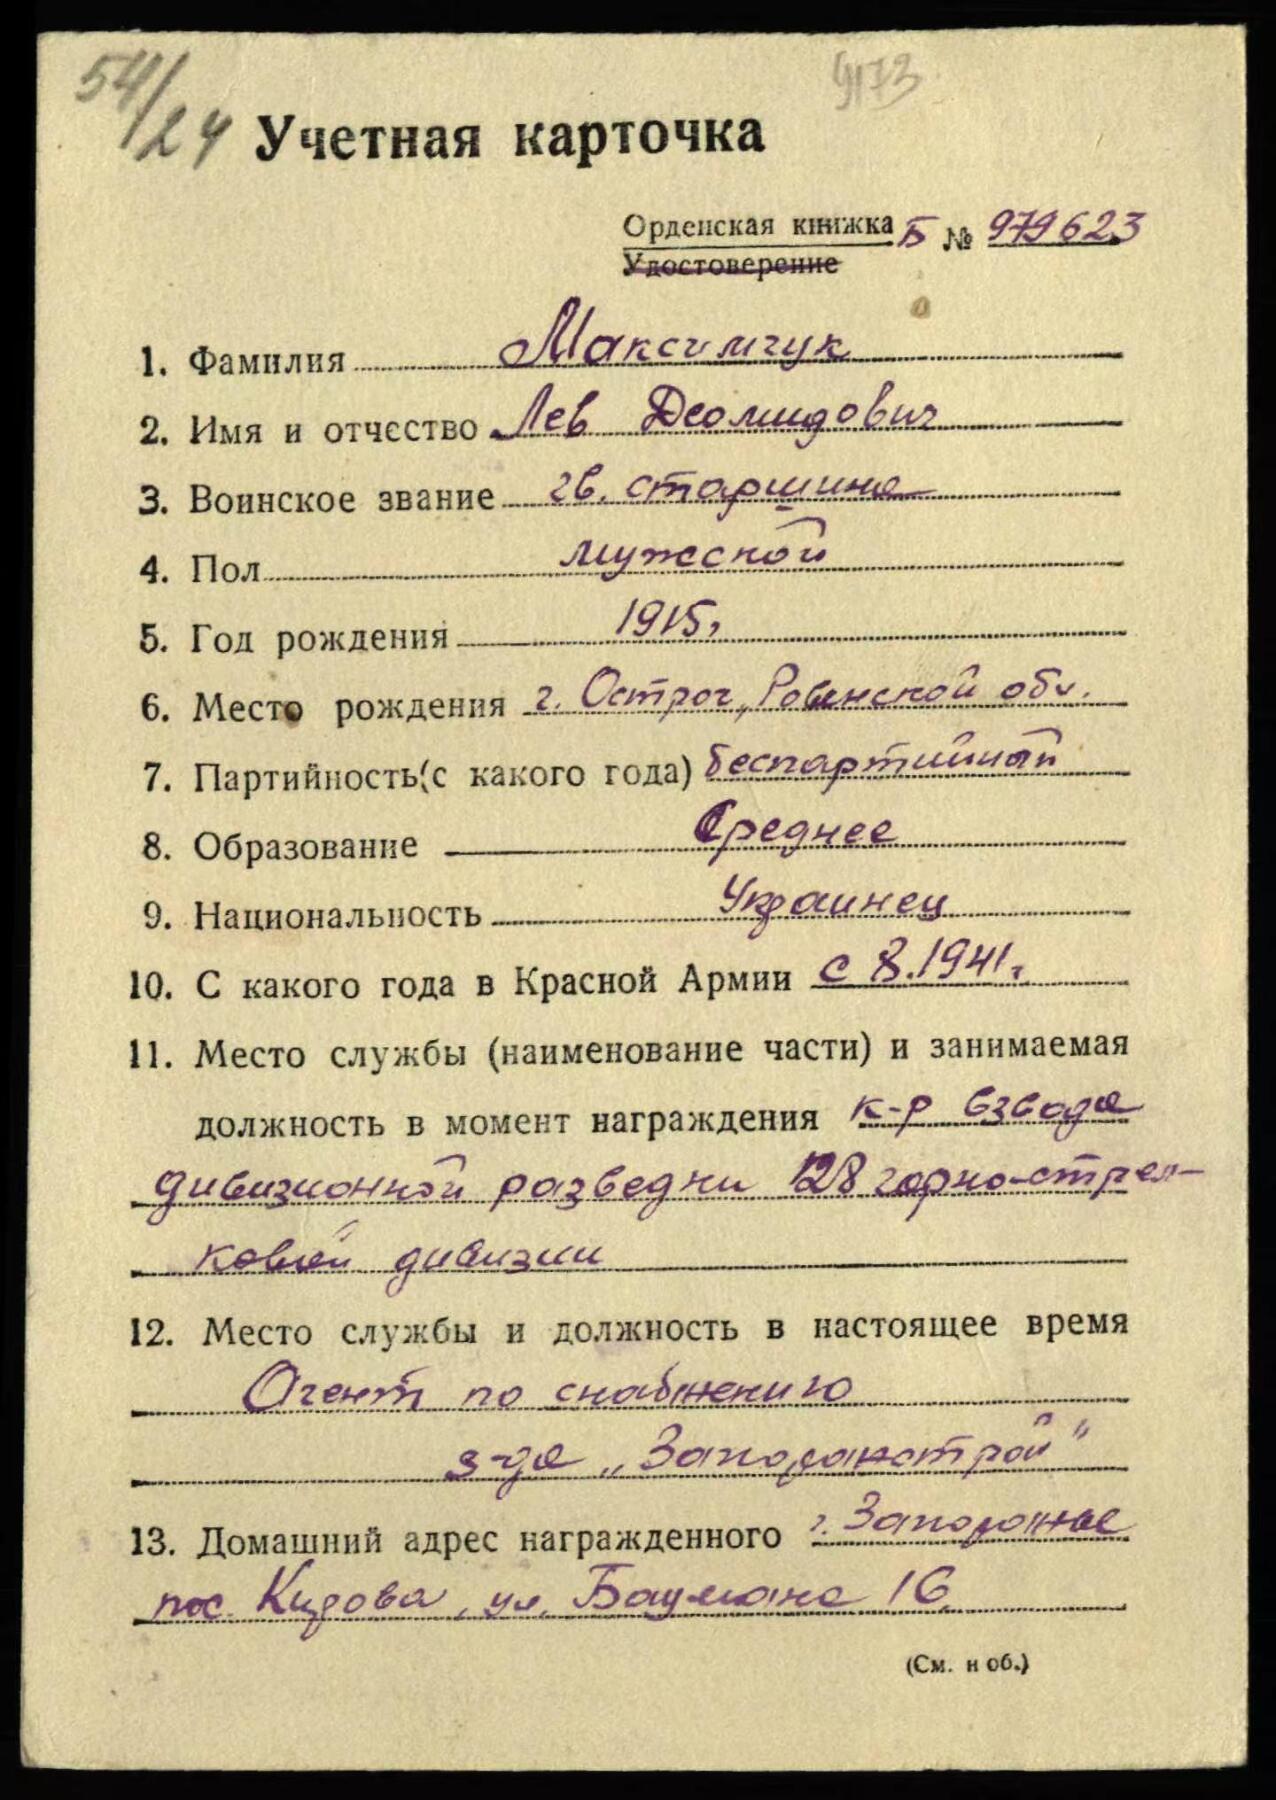 54/24
9173
Учетная карточка
Орденская книжка Б № 979623
Удостоверение
1. Фамилия Максимчук
2. Имя и отчество Лев Деомидович
3. Воинское звание гв. старшина
4. Пол мужской
5. Год рождения 1915г.
6. Место рождения г. Острог, Ровенской обл.
7. Партийность (с какого года) беспартийный
8. Образование Среднее
9. Национальность Украинец
10. С какого года в Красной Армии с 8.1941г.
11. Место службы (наименование части) и занимаемая
должность в момент награждения к-р взвода
дивизионной разведки 128 горно-стрел-
ковой дивизии
12. Место службы и должность в настоящее время
Агент по снабжению
з-да „Запорожстрой"
13. Домашний адрес награжденного г. Запорожье
пос. Кирова, ул. Баумана 16
(См. н об.)